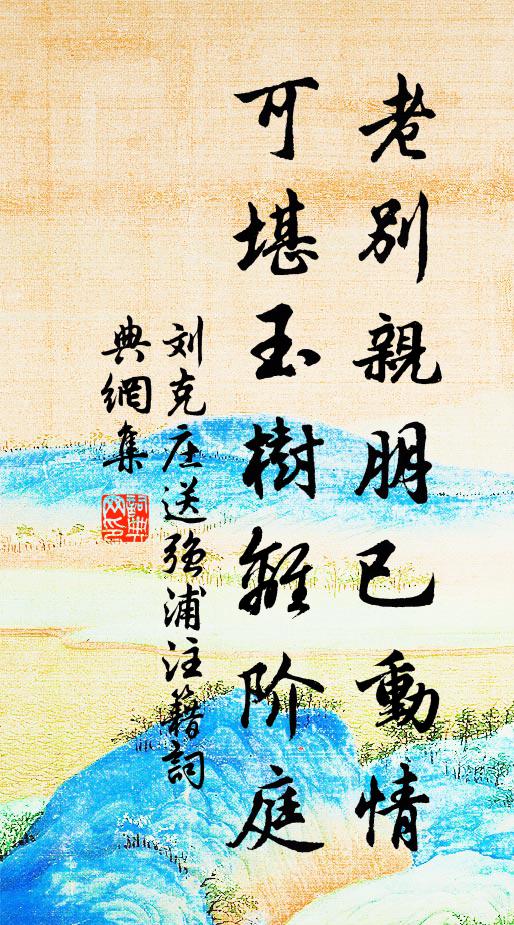 老別親朋已動情
可堪玉樹離阶庭
刘克庄送强浦注籍詞
典網集